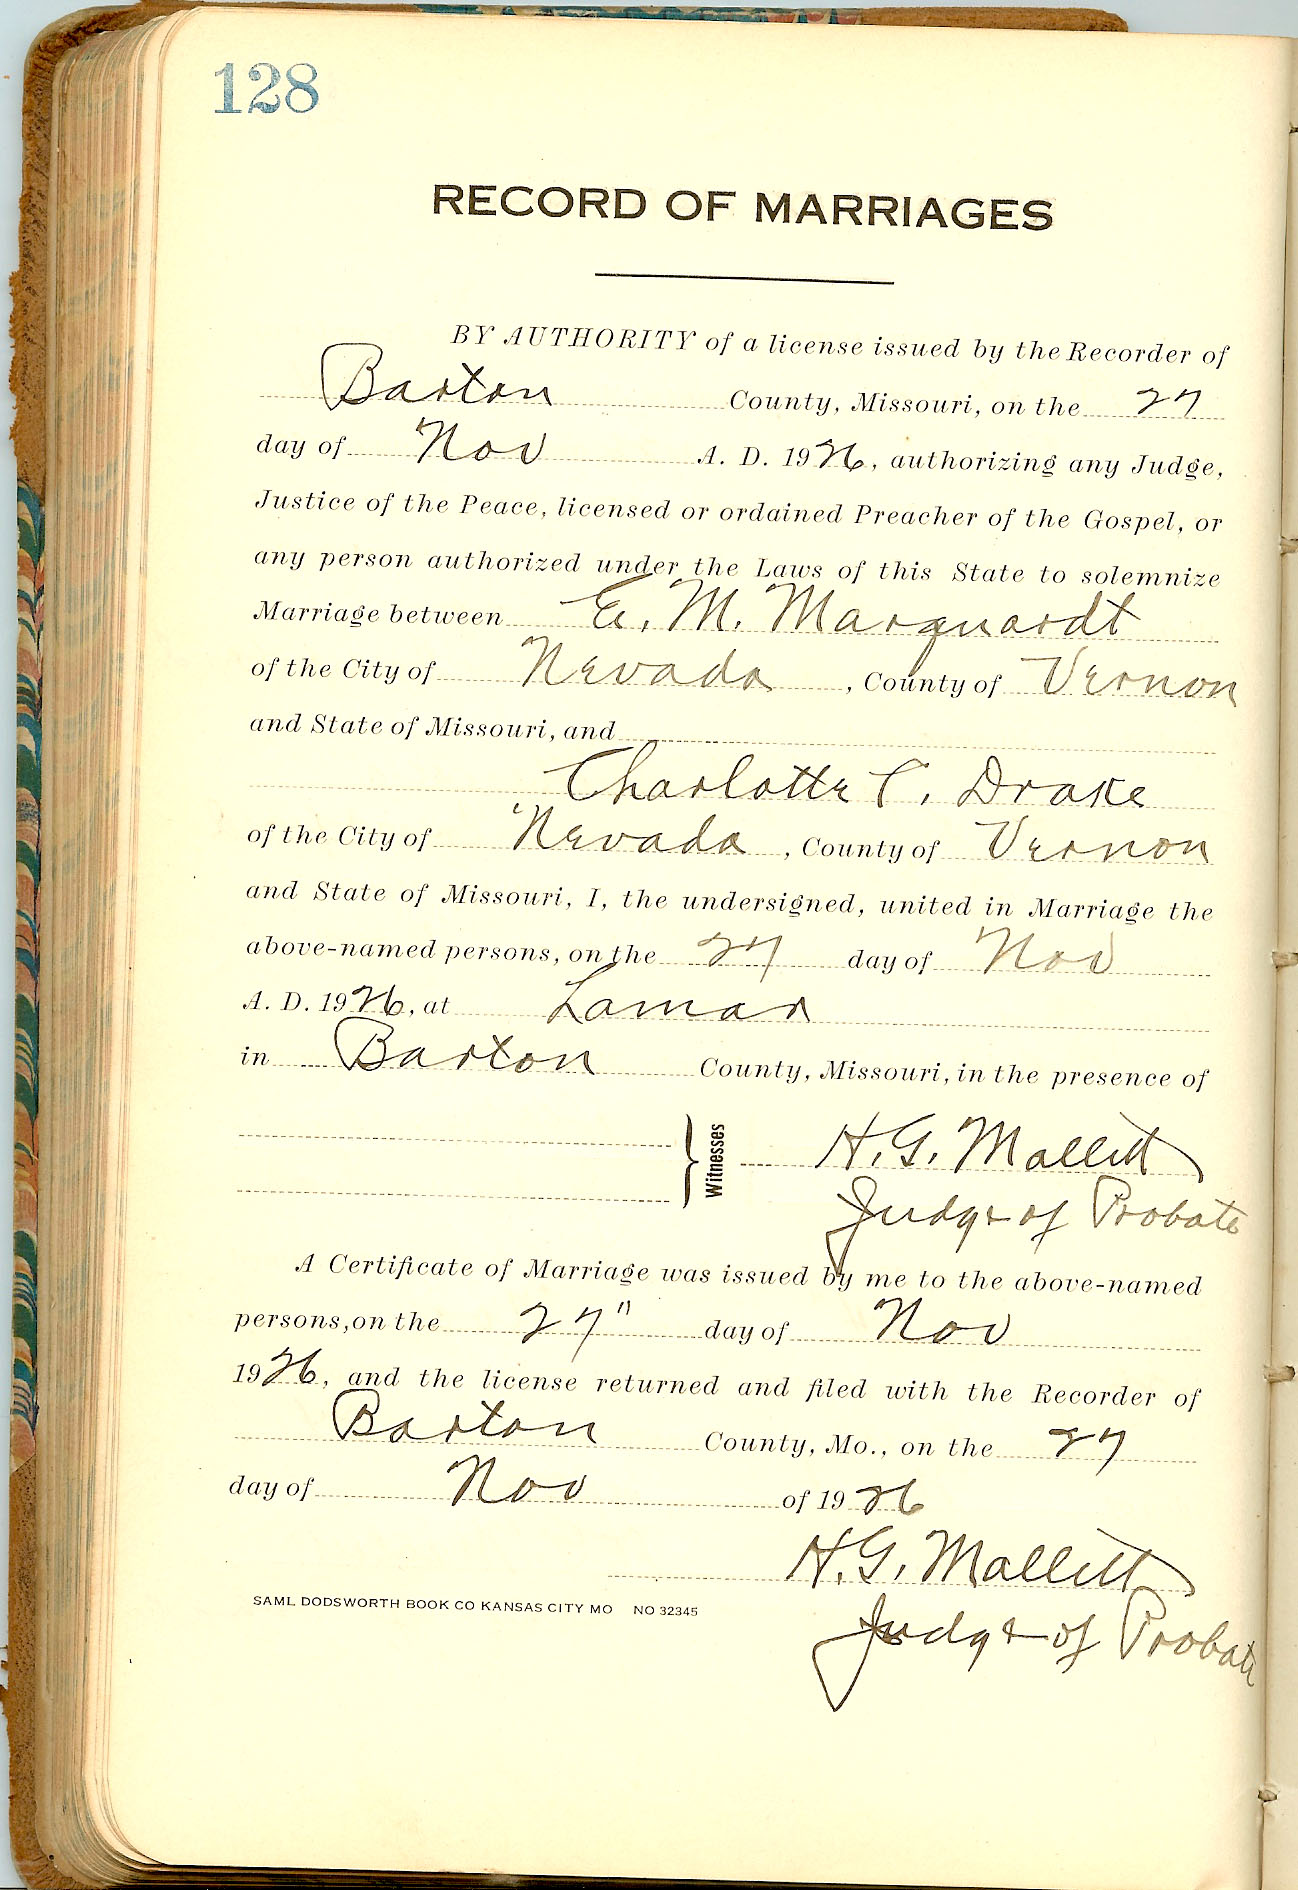 128
RECORD OF MARRIAGES
BY AUTHORITY of a license issued by the Recorder of
Barton County, Missouri, on the 27
day of Nov A. D. 1926, authorizing any Judge,
Justice of the Peace, licensed or ordained Preacher of the Gospel, or
any person authorized under the Laws of this State to solemnize
Marriage between E. M. Marquardt
of the City of Nevada, County of Vernon
and State of Missouri, and
Charlotte C. Drake
of the City of Nevada, County of Vernon
and State of Missouri, I, the undersigned, united in Marriage the
above-named persons, on the 27 day of Nov
A. D. 1926, at Lamar
in Barton County, Missouri, in the presence of
Witnesses H. G. Mallett
Judge of Probate
A Certificate of Marriage was issued by me to the above-named
persons, on the 27" day of Nov
1926, and the license returned and filed with the Recorder of
Barton County, Mo., on the 27
day of Nov of 1926
H. G. Mallett
SAML DODSWORTH BOOK CO KANSAS CITY MO NO 32345
Judge of Probate